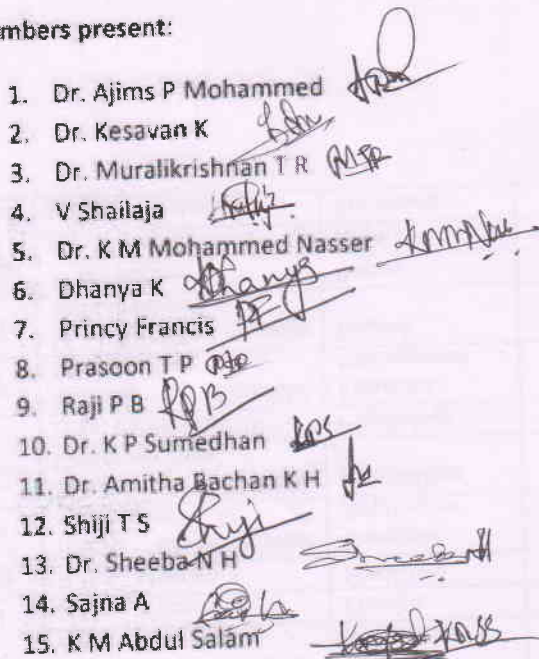 mbers present:
1. Dr. Ajims P Mohammed
2. Dr. Kesavan K
3. Dr. Muralikrishnan T R
4. V Shailaja
5. Dr. K M Mohammed Nasser
6. Dhanya K Dhanya
7. Princy Francis PF
8. Prasoon T P
9. Raji P B RPB
10. Dr. K P Sumedhan KPS
11. Dr. Amitha Bachan K H
12. Shiji T S Shiji
13. Dr. Sheeba N H
14. Sajna A
15. K M Abdul Salam